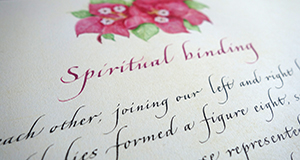 Spiritual binding
each other, joining our left and right
formed a figure eight, s
represente